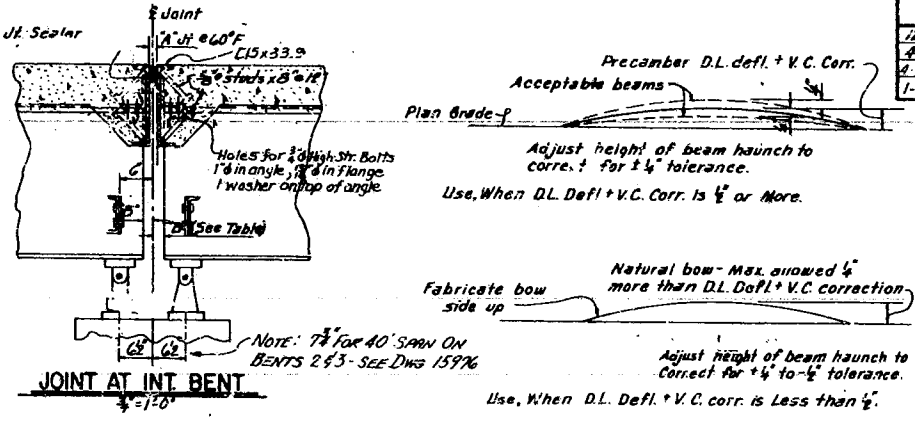 ℄ Joint
Jt. Sealer
"A" Jt. @ 60°F
C15x33.9
studs x 8"
Holes for 3/4"ϕ High Str. Bolts
1"ϕ in angle, in flange
1 washer on top of angle
6"
(See Table)
6 1/2" 6 1/2"
NOTE: 7 3/4" FOR 40' SPAN ON
BENTS 2 & 3 - SEE DWG 15976
JOINT AT INT. BENT
3/4"=1'-0"
Precamber D.L. defl. + V.C. Corr.
Acceptable beams
Plan Grade
Adjust height of beam haunch to
correct for ± 1/4" tolerance.
Use, When D.L. Defl + V.C. Corr. is 1/2" or More.
Natural bow - Max. allowed 1/4"
more than D.L. Defl. + V.C. correction
Fabricate bow
side up
Adjust height of beam haunch to
Correct for + 1/4" to - 1/2" tolerance.
Use, When D.L. Defl. + V.C. corr. is Less than 1/2".